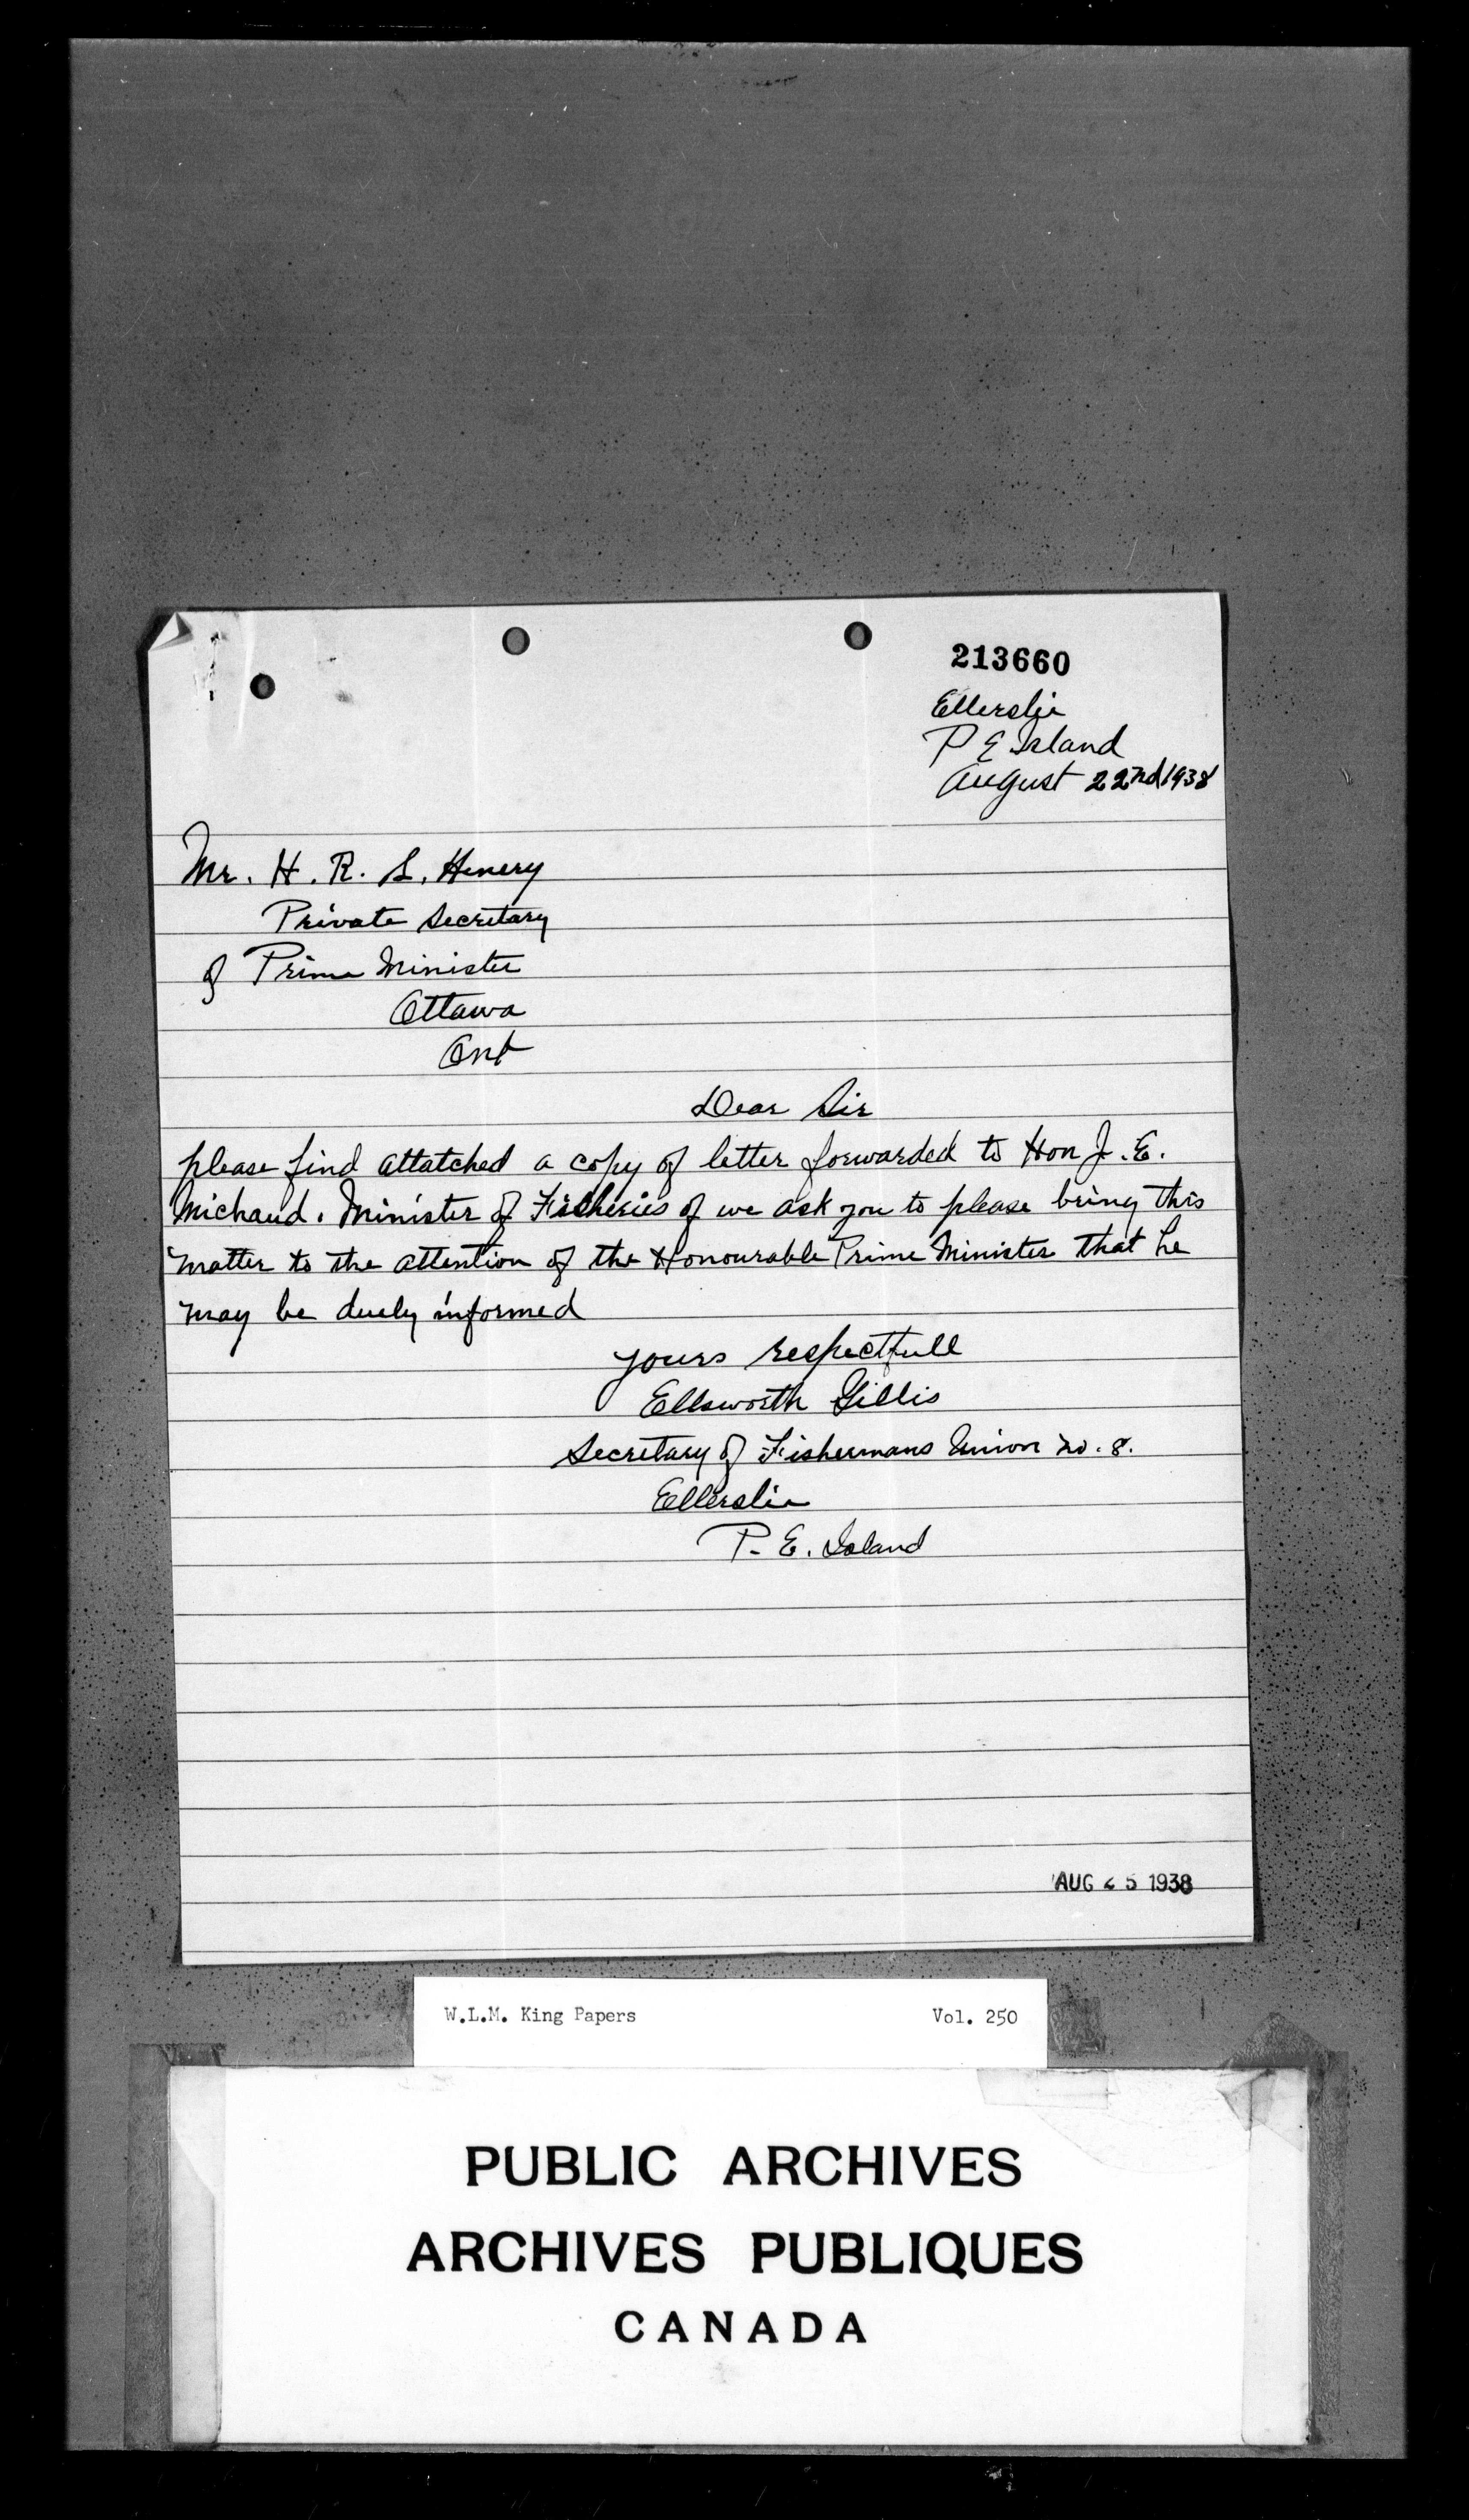 213660
Ellerslie
P E Island
August 22nd 1938
Mr. H. R. L. Henery
Private Secretary
of Prime Minister
Ottawa
Ont
Dear Sir
please find attatched a copy of letter forwarded to Hon J. E.
Michaud. Minister of Fisheries of we ask you to please bring this
matter to the attention of the Honourable Prime Minister that he
may be duely informed
yours respectfull
Ellsworth Gillis
Secretary of Fishermans Union no. 8.
Ellerslie
P. E. Island
AUG 25 1938
W.L.M. King Papers Vol. 250
PUBLIC ARCHIVES
ARCHIVES PUBLIQUES
CANADA